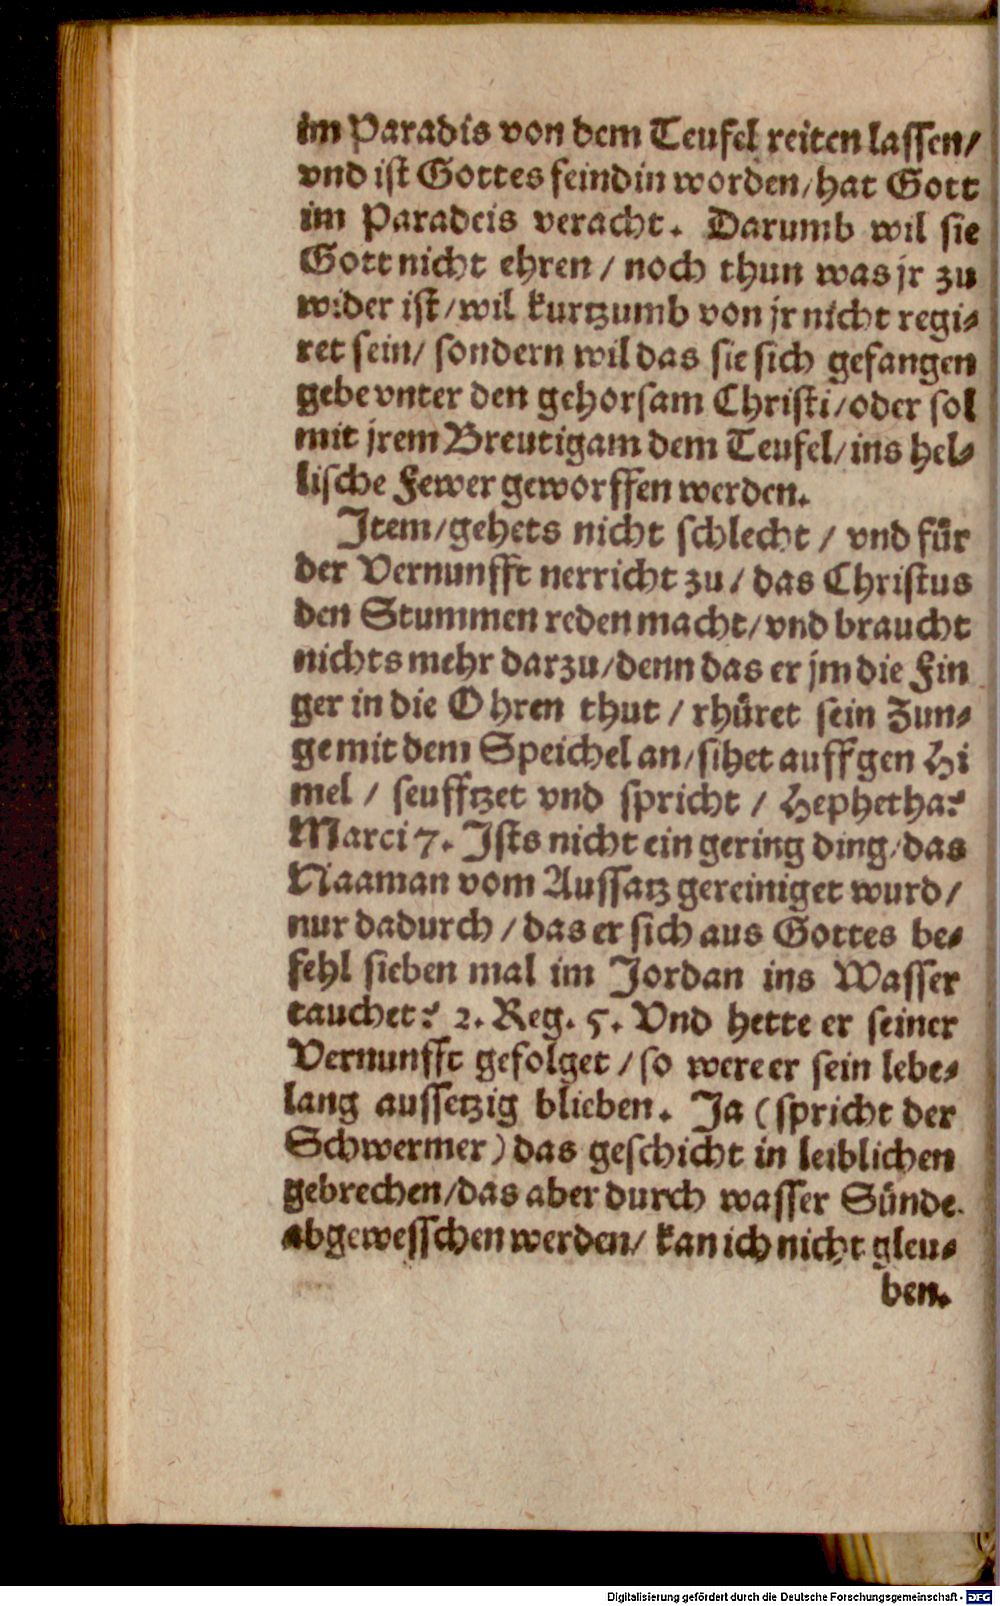 im Paradis von dem Teufel reiten lassen/
vnd ist Gottes feindin worden/hat Gott
im Paradeis veracht. Darumb wil sie
Gott nicht ehren / noch thun was jr zu
wider ist/wil kurtzumb von jr nicht regi-
ret sein/ sondern wil das sie sich gefangen
gebe vnter den gehorsam Christi/oder sol
mit jrem Breutigam dem Teufel/ins hel-
lische Fewer geworffen werden.
Item/gehets nicht schlecht / vnd für
der Vernunfft nerricht zu / das Christus
den Stummen reden macht/vnd braucht
nichts mehr darzu/denn das er jm die Fin
ger in die Ohren thut / rhüret sein Zun-
ge mit dem Speichel an/sihet auff gen Hi
mel / seufftzet vnd spricht / Hephetha?
Marci 7. Ists nicht ein gering ding/das
Naaman vom Aussatz gereiniget wurd/
nur dadurch / das er sich aus Gottes be-
fehl sieben mal im Jordan ins Wasser
tauchet? 2. Reg. 5. Vnd hette er seiner
Vernunfft gefolget / so were er sein lebe-
lang aussetzig blieben. Ja (spricht der
Schwermer) das geschicht in leiblichen
gebrechen/das aber durch wasser Sünde
abgewesschen werden/ kan ich nicht gleu-
ben.
Digitalisierung gefördert durch die Deutsche Forschungsgemeinschaft - DFG